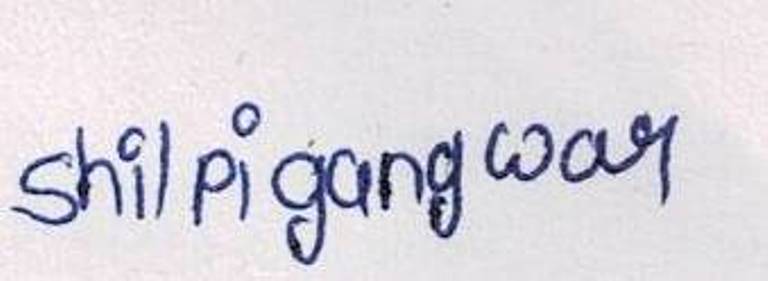 Shilpi gangwar